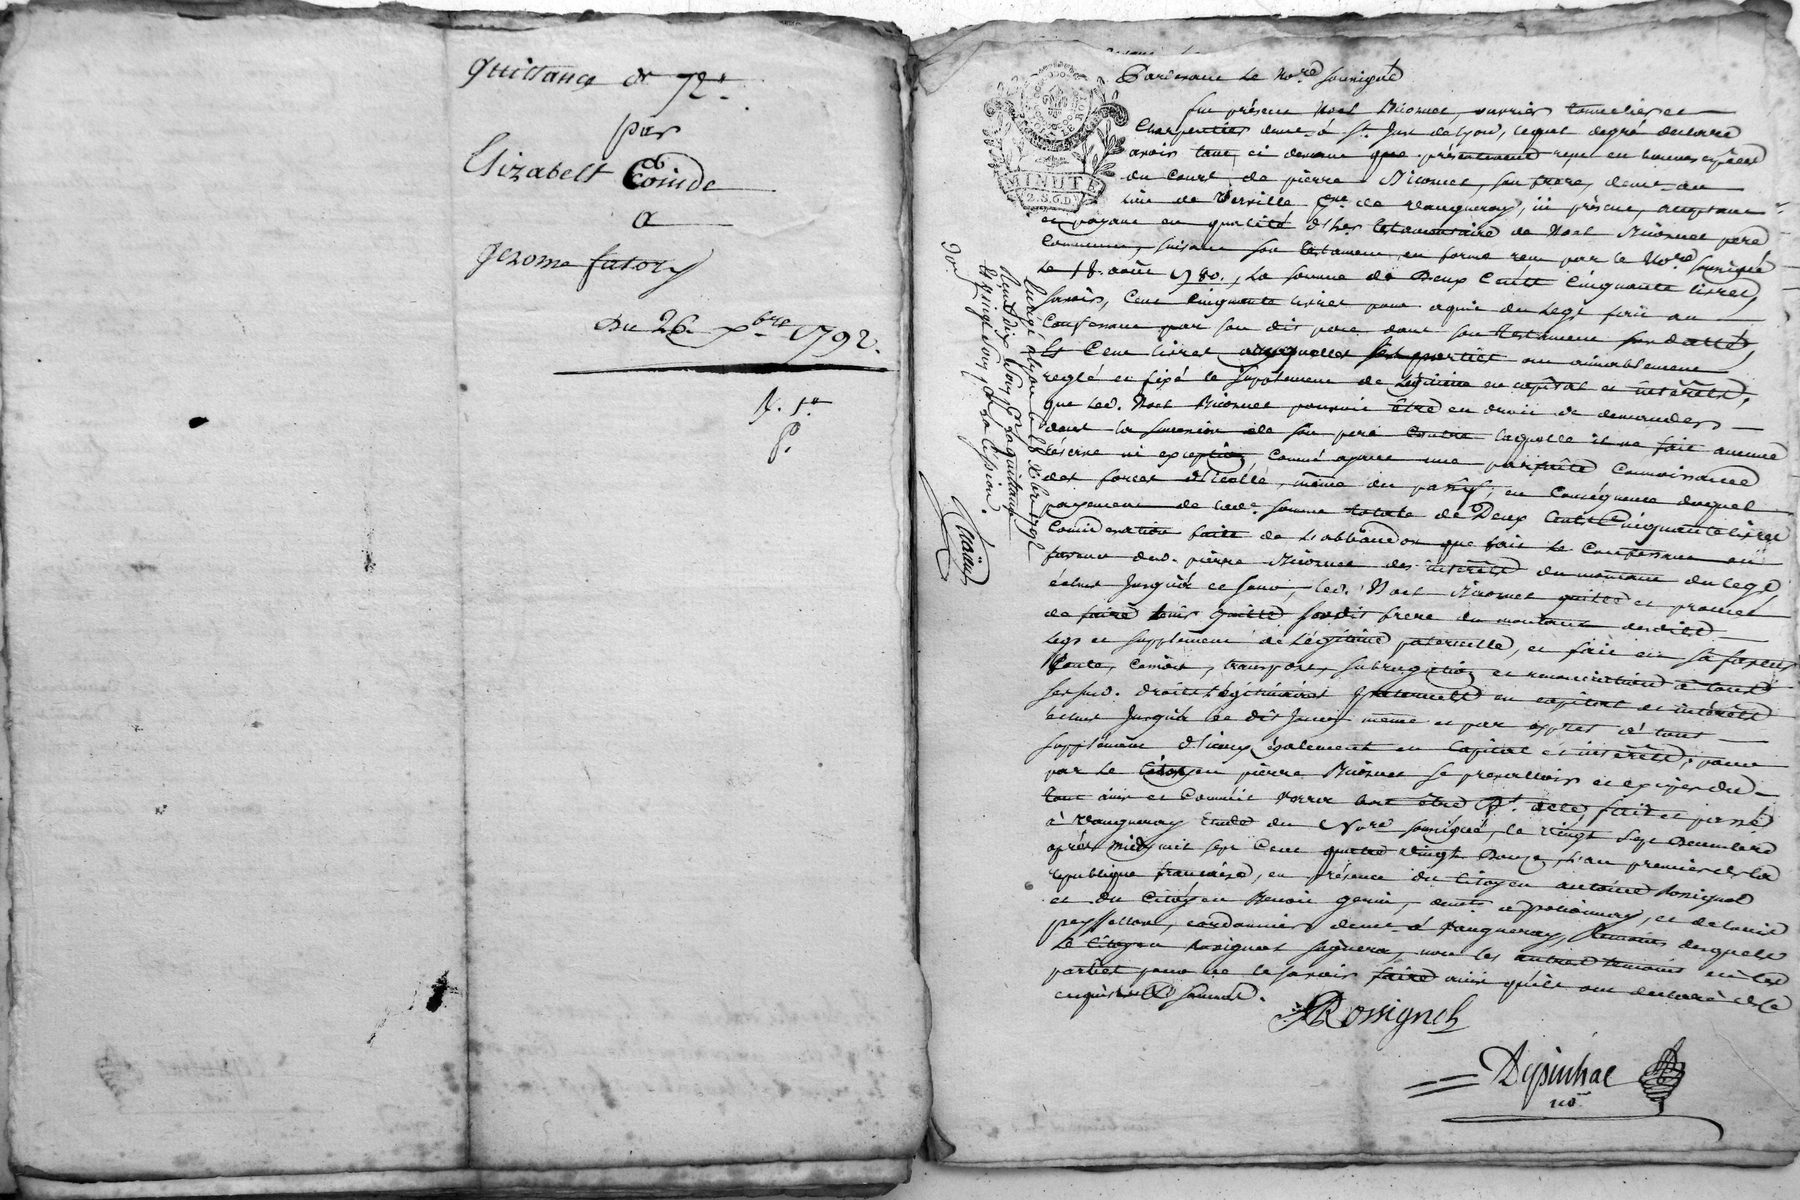 quittance de 72 ᵗᵗ.
par
Elizabelt Coinde
a
Jerome fatory
Du 26. Xbre 1792.
R. 1ᵗᵗ
P.
MINUTE
2.S.6.D.
Pardevant le Nore soussigné
fut présent Noel ouvrier tonnelier et
Charpentier demt. à St. Just de Lyon, lequel de gré declare
avoir tant ci devant que présentement reçu en bonnes espèces
du Cours de pierre son frere, demt. au
lieu de Verville Cne. de Vaugneray, ici présent, acceptant
et payant en qualité d'her. testamentaire de Noel pere
Commun, suivant son testament en forme reçu par le Nore. soussigné
le 18. août 1780., La somme de Deux Cents Cinquante livres,
savoir, Cent Cinquante livres pour aquit du Legs fait au
Confessant par son dit pere dans son testament susdatté,
Et Cent livres auxquelles les parties ont aimablement
reglé et fixé le suplément de Légitime en capital et intérêts,
que led. Noel pouvoit être en droit de demander
dans la succession de son pere contre laquelle il ne fait aucune
réserve ni exception comme ayant une parfaite connoissance
des forces d'icelle, même du passif, en conséquence duquel
payement de lade. somme totale de Deux Cents Cinquante livres
Considération faite de l'abbandon que fait le Confessant en
faveur dud. pierre des intérêts du montant du legs
échus jusqu'à ce jour, led. Noel quitte et promet
de faire tenir quitte sondit frere du montant desdits
legs et supplément de Légitime paternelle, et fait en sa faveur
toute cession, transport, subrogation et renonciation à tous
sesdts. droits Légitimaires paternels en capital et intérêts
échus jusqu'à ce dit jour même et par exprès à tous
supplément d'iceux également en Capital et intérêts, pour
par le Citoyen pierre se prevaloir et exiger du
tout ainsi et comme verra bon être Dt. acte, fait et passé
à Vaugneray Etude du Nore soussigné, le vingt sept Decembre
après midy mil sept Cent quatre vingt Douze, L'an premier de la
république française, en présence du citoyen antoine Rossignol
et du Citoyen Benoit gerin, demt. a pollionnay, et de Louis
peysselon, cordonnier demt. à Vaugneray, témoins desquels
le Citoyen Rossignol signera, non les autres témoins ni les
parties pour ne le savoir faire ainsi qu'ils ont declaré de ce
enquis et sommés.
Rossignol
Despinhac
nore
Enregé. à Lyon le 28 Xbre 1792
Reçu dix sols pr. la quittance
et vingt sols pr. la cession.
30s.